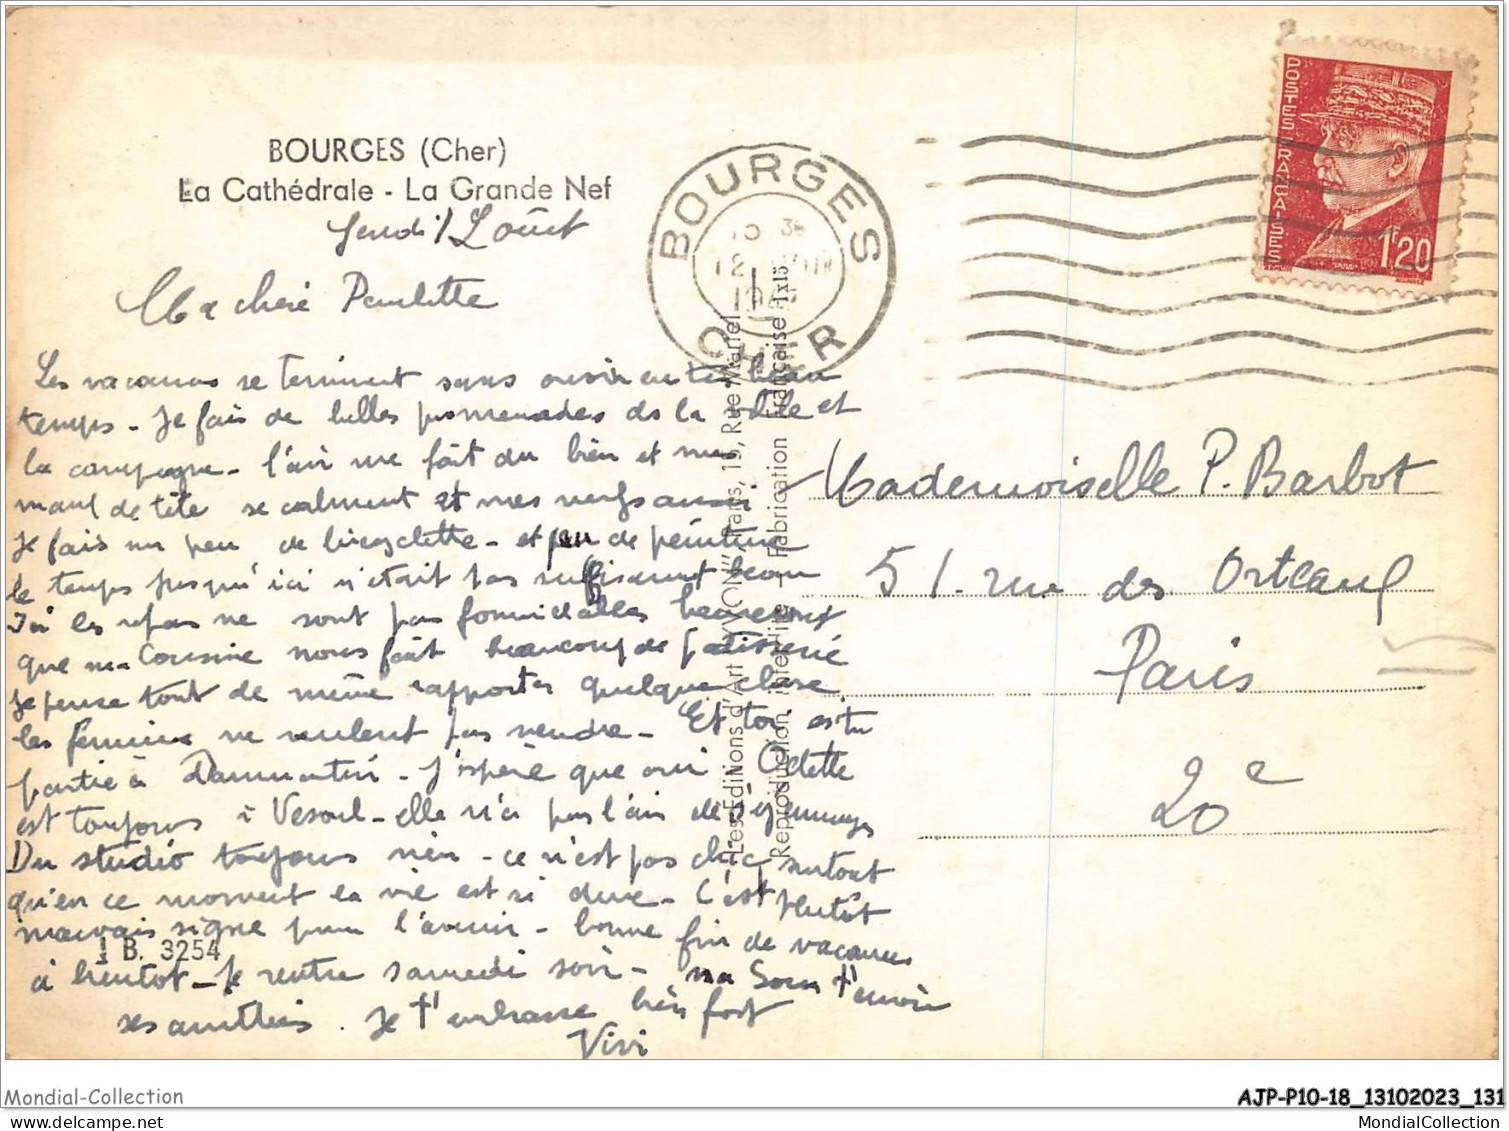 BOURGES (Cher)
La Cathédrale - La Grande Nef
Jeudi 12 Août
Ma cheré Paulette
Les vacances se terminent sans avoir eu très beau
temps - Je fais de belles promenades ds la ville et
la campagne - l'air me fait du bien et mes
maux de tête se calment et mes nerfs aussi
Je fais un peu de bicyclette - et peu de peinture
le temps jusqu'ici n'etait pas suffisament beau
Ici les repas ne sont pas formidables heureusmt
que ma Cousine nous fait beaucoup de patisserie
Je pense tout de même rapporter quelque chose
les fermiers ne veulent pas vendre - Et toi es-tu
partie à Dammartin - J'espère que oui Odette
est toujours à Vesoul - elle n'a pas l'air de s'y ennuyer
Du studio toujours rien - ce n'est pas chic, surtout
qu'en ce moment la vie est si dure - C'est plutôt
mauvais signe pour l'avenir - bonne fin de vacances
à bientôt - Je rentre samedi soir - ma Soeur t'envoie
ses amitiés. Je t'embrasse bien fort
Vivi
I B. 3254
BOURGES
12 VIII
CHER
Les Editions d'Art "YVON", Paris, 15, Rue Martel
Reproduction Interdite - Fabrication Française 1x15
POSTES FRANCAISES
1F20
Mademoiselle P. Barbot
51. rue des Orteaux
Paris
20e
Mondial-Collection
AJP-P10-18_13102023_131
MondialCollection.com